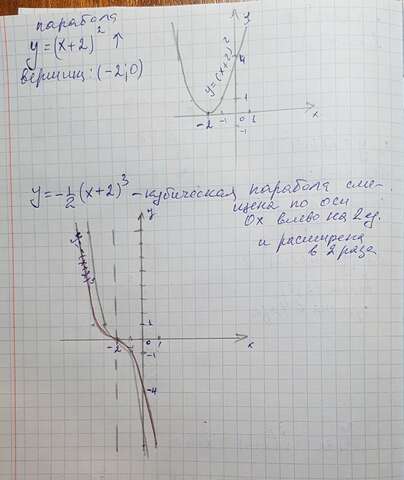 парабола
y = (x+2)² ↑
вершин: (-2; 0)
y
y=(x+2)²
4
1
-2 -1 0 1
-1
x
y = -1/2 (x+2)³ - кубическая парабола сме-
щена по оси
Ох влево на 2 ед.
и расширена
в 2 раза
y
1
-2 -1 0 1
x
-1
-4